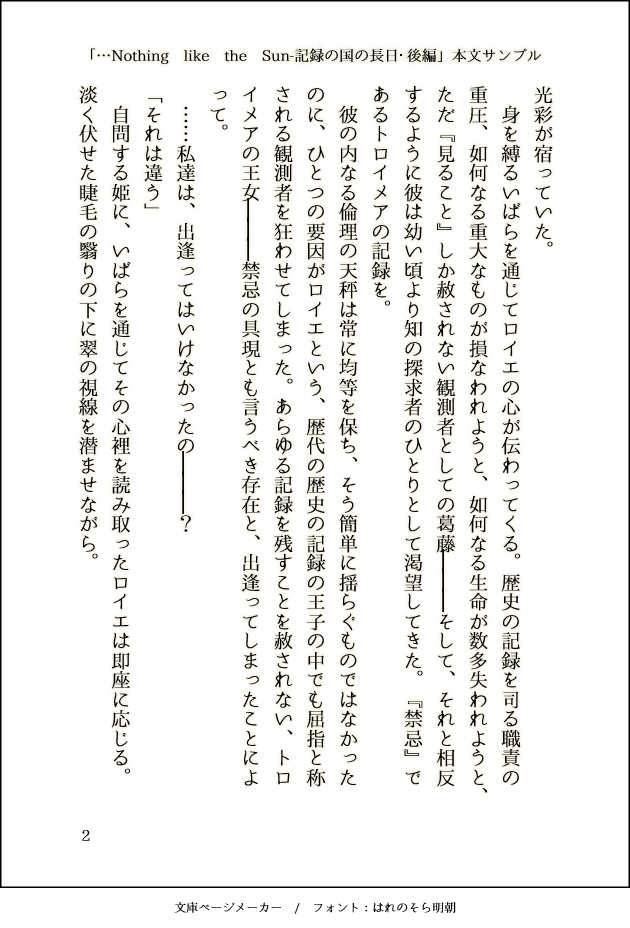 「…Nothing like the Sun-記録の国の長日・後編」本文サンプル
光彩が宿っていた。
身を縛るいばらを通じてロイエの心が伝わってくる。歴史の記録を司る職責の
重圧、如何なる重大なものが損なわれようと、如何なる生命が数多失われようと、
ただ『見ること』しか赦されない観測者としての葛藤――そして、それと相反
するように彼は幼い頃より知の探求者のひとりとして渇望してきた。『禁忌』で
あるトロイメアの記録を。
彼の内なる倫理の天秤は常に均等を保ち、そう簡単に揺らぐものではなかった
のに、ひとつの要因がロイエという、歴代の歴史の記録の王子の中でも屈指と称
される観測者を狂わせてしまった。あらゆる記録を残すことを赦されない、トロ
イメアの王女――禁忌の具現とも言うべき存在と、出逢ってしまったことによ
って。
……私達は、出逢ってはいけなかったの――？
「それは違う」
自問する姫に、いばらを通じてその心裡を読み取ったロイエは即座に応じる。
淡く伏せた睫毛の翳りの下に翠の視線を潜ませながら。
2
文庫ページメーカー / フォント：はれのそら明朝